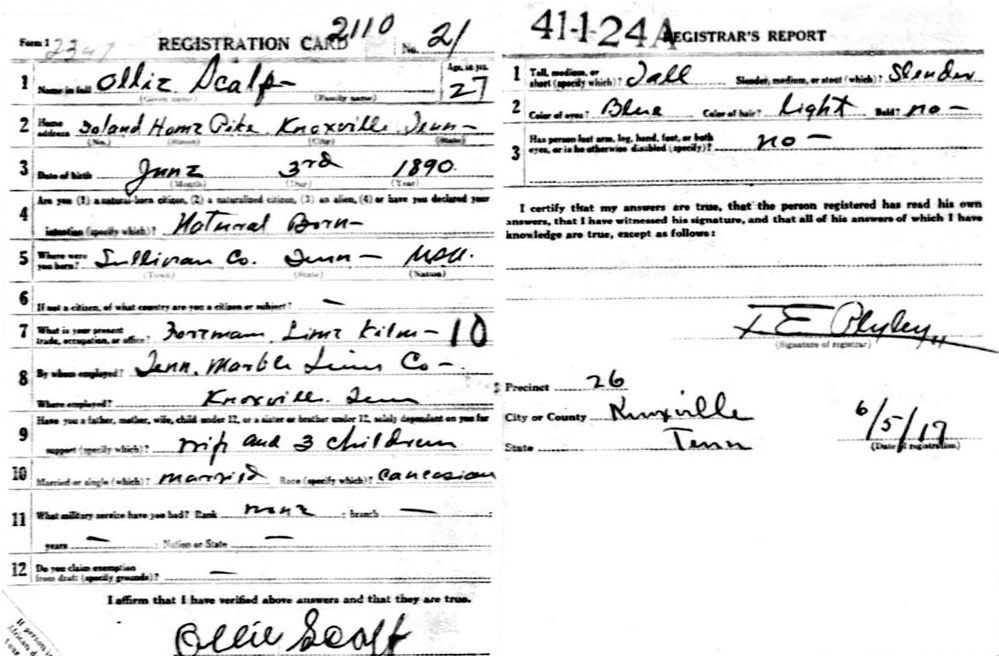 Form 1 2347 REGISTRATION CARD 2110 No. 21
1 Name in full Ollie Scalf (Given name) (Family name) Age, in yrs. 27
2 Home address Island Home Pike Knoxville Tenn (No.) (Street) (City) (State)
3 Date of birth June 3rd 1890 (Month) (Day) (Year)
4 Are you (1) a natural-born citizen, (2) a naturalized citizen, (3) an alien, (4) or have you declared your
intention (specify which)? Natural Born
5 Where were you born? Sullivan Co. Tenn USA. (Town) (State) (Nation)
6 If not a citizen, of what country are you a citizen or subject? —
7 What is your present trade, occupation, or office? Foreman Lime Kiln 10
8 By whom employed? Tenn. Marble Lime Co
Where employed? Knoxville Tenn
9 Have you a father, mother, wife, child under 12, or a sister or brother under 12, solely dependent on you for
support (specify which)? Wife and 3 children
10 Married or single (which)? married Race (specify which)? Caucasian
11 What military service have you had? Rank none ; branch — ;
years — ; Nation or State —
12 Do you claim exemption from draft (specify grounds)? —
I affirm that I have verified above answers and that they are true.
Ollie Scalf
If person is
African d
41-1-24 A REGISTRAR'S REPORT
1 Tall, medium, or short (specify which)? Tall Slender, medium, or stout (which)? Slender
2 Color of eyes? Blue Color of hair? Light Bald? no
3 Has person lost arm, leg, hand, foot, or both eyes, or is he otherwise disabled (specify)? no
I certify that my answers are true, that the person registered has read his own
answers, that I have witnessed his signature, and that all of his answers of which I have
knowledge are true, except as follows:
(Signature of registrar)
Precinct 26
City or County Knoxville
State Tenn
6/5/17
(Date of registration)